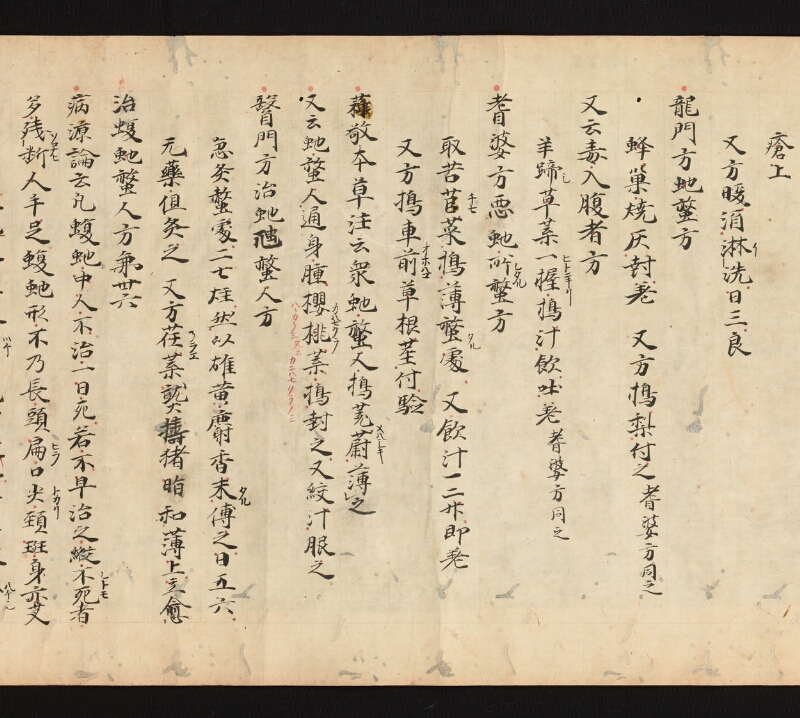 瘡上
又方暖酒淋洗日三良
龍門方虵螫方
蜂巢燒灰封差　又方搗梨付之 耆婆方同之
又云毒入腹者方
羊蹄草菜一握搗汁飲吐差 耆婆方同之
耆婆方惡虵所螫方
取苦苣菜搗薄螫處　又飲汁一二升即差
又方搗車前草根莖付驗
蘓敬本草注云衆虵螫人搗茺蔚薄之
又云虵螫人通身腫櫻桃葉搗封之又絞汁服之
醫門方治虵虺螫人方
急灸螫處二七炷然以雄黃麝香末傅之日五六
元藥但灸之　又方荏葉熟擣猪脂和薄上立愈
治蝮虵螫人方第卅六
病源論云凡蝮虵中人不治一日死若不早治之縱不死者
多殘斷人手足蝮虵形不乃長頭扁口尖頚斑身亦艾